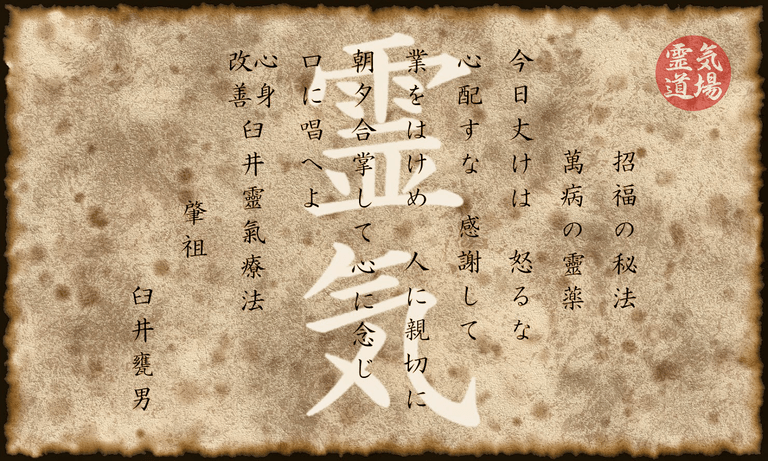 招福の秘法
萬病の靈薬
今日丈けは　怒るな
心配すな　感謝して
業をはけめ　人に親切に
朝夕合掌して心に念じ
口に唱へよ
心身改善臼井靈氣療法
肇祖
臼井甕男
霊気
霊気道場